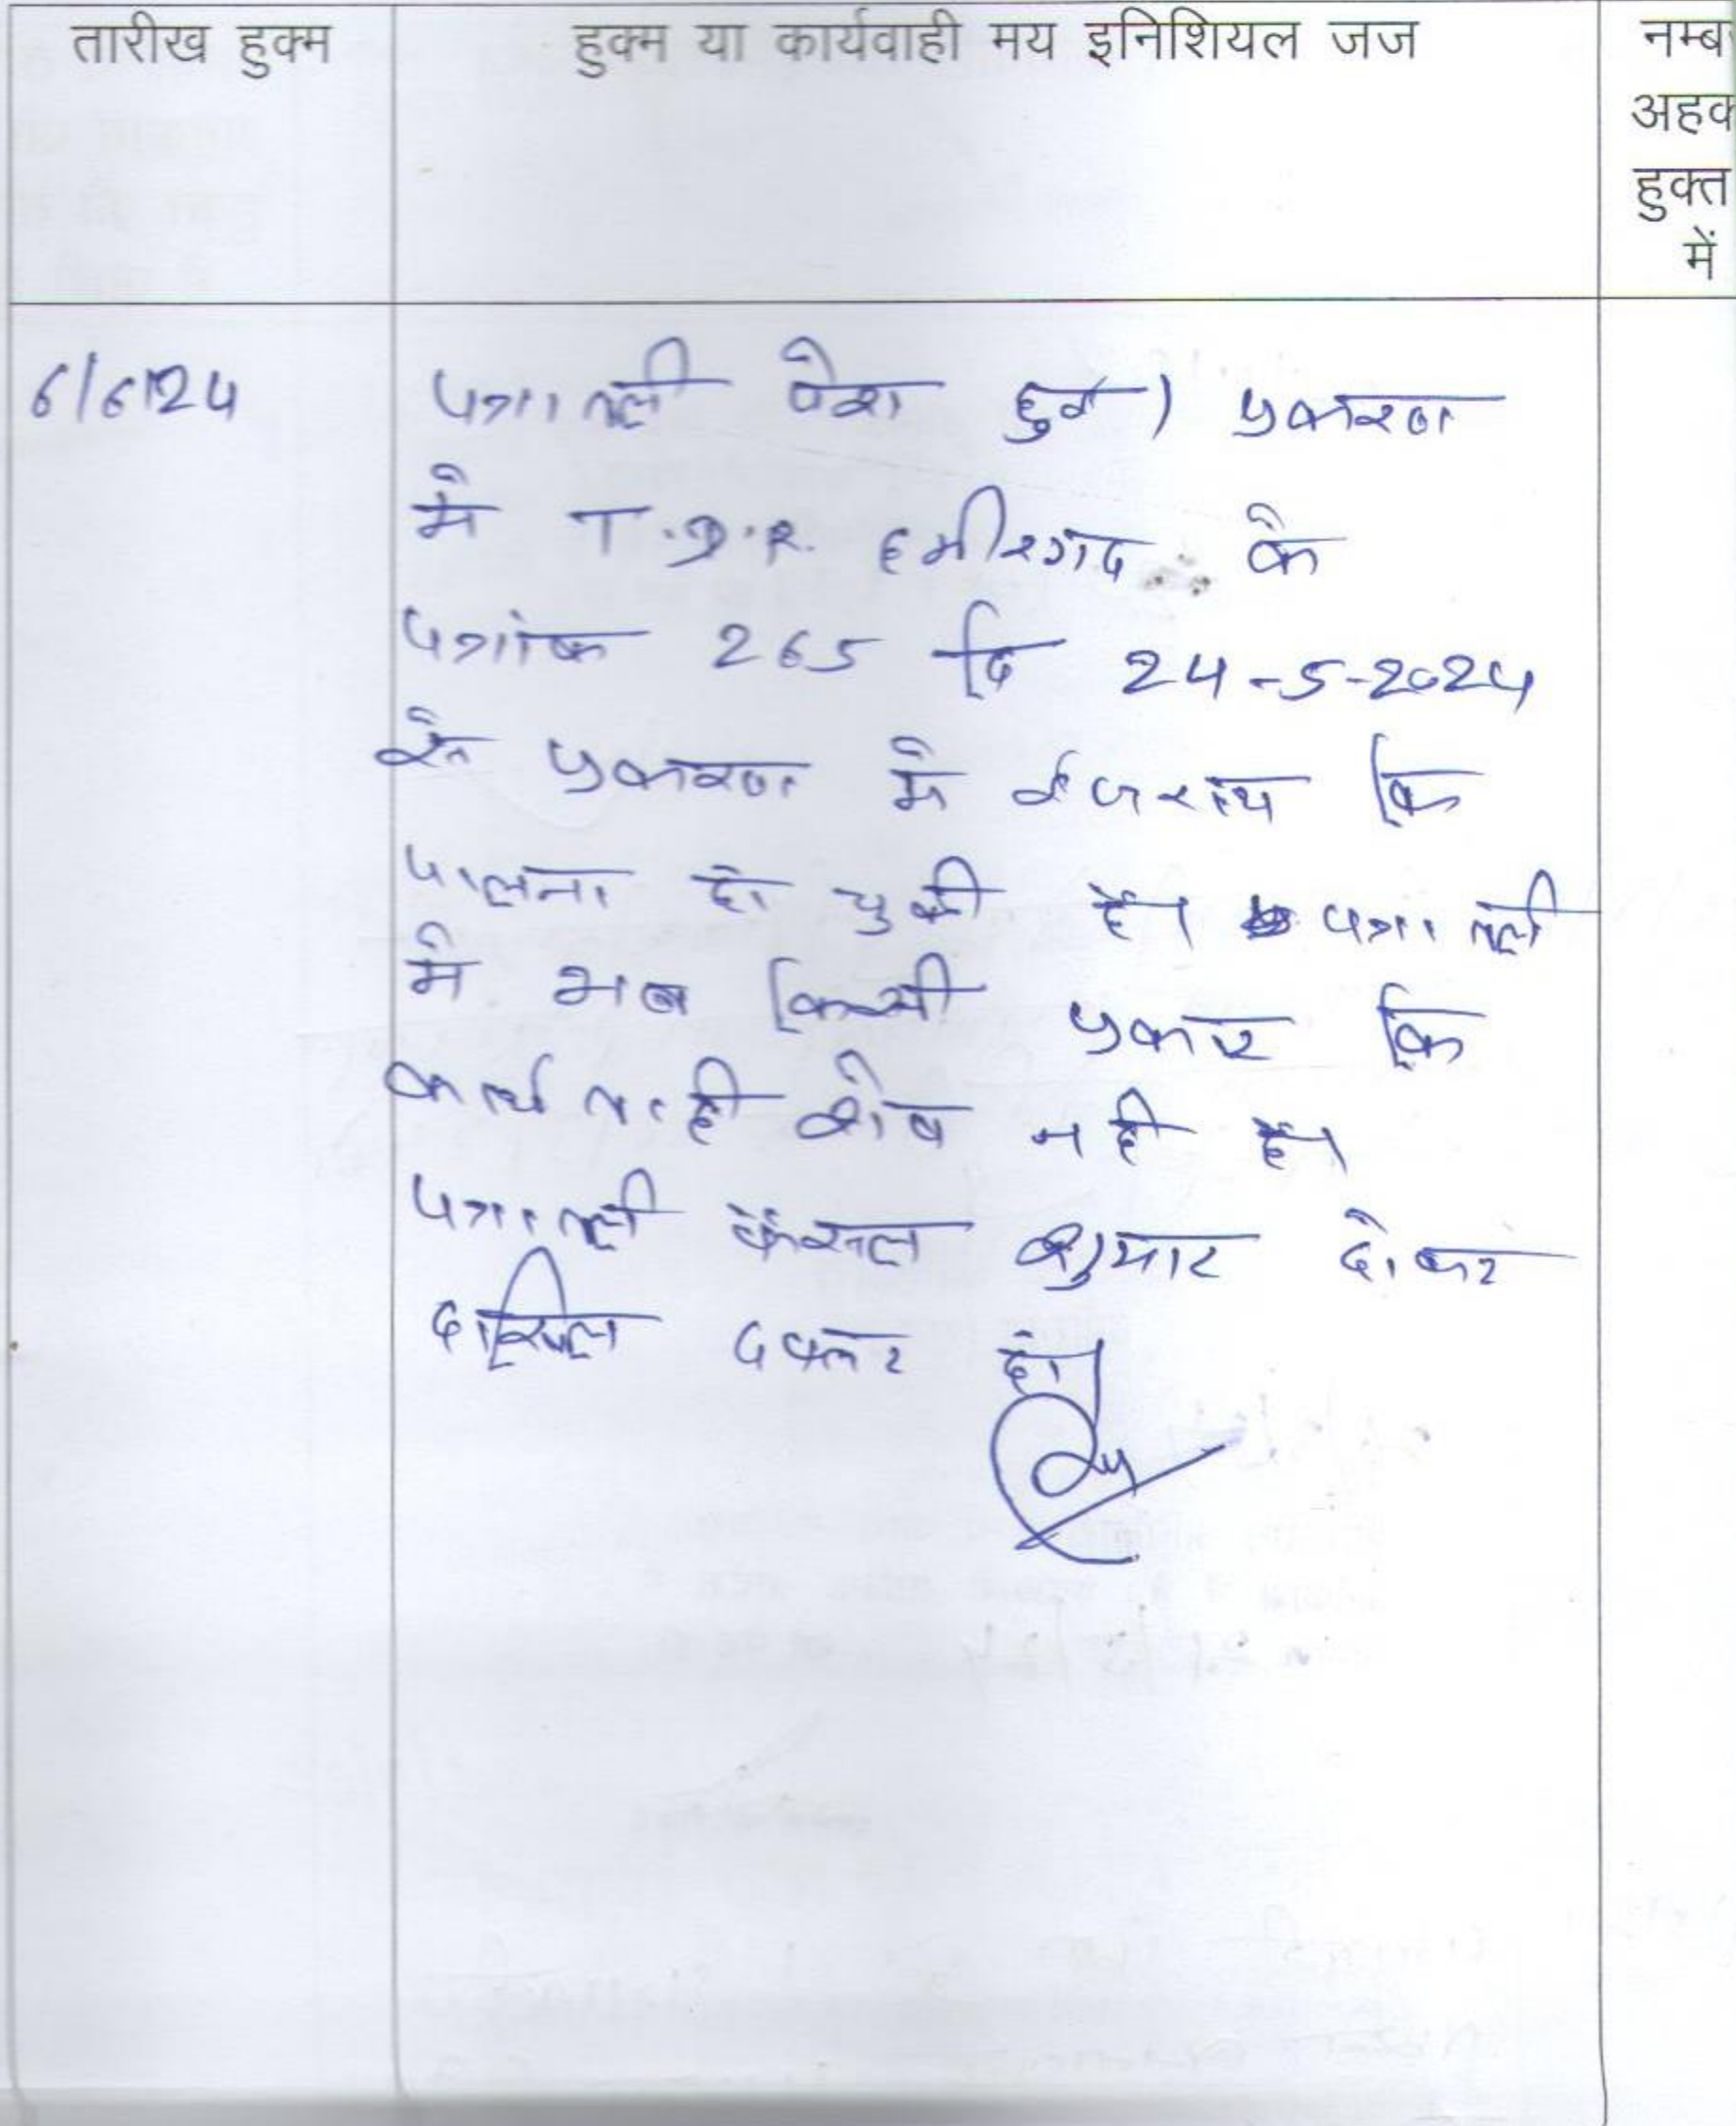 तारीख हुक्म
हुक्म या कार्यवाही मय इनिशियल जज
नम्ब
अहक
हुक्त
में
6/6/24
पत्रावली पेश हुई। प्रकरण
में T.D.R. हमीरगढ के
पत्रांक 265 दि 24-5-2024
से प्रकरण में कि
पालना हो चुकी है। पत्रावली
में अब किसी प्रकार कि
कार्यवाही शेष नही है।
पत्रावली फैसल शुमार होकर
दाखिल दफ्तर हो।